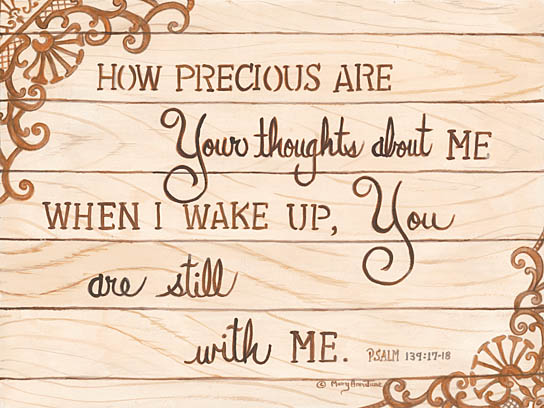 HOW PRECIOUS ARE
Your thoughts about ME
WHEN I WAKE UP, You
are still
with ME. PSALM 139:17-18
© Mary